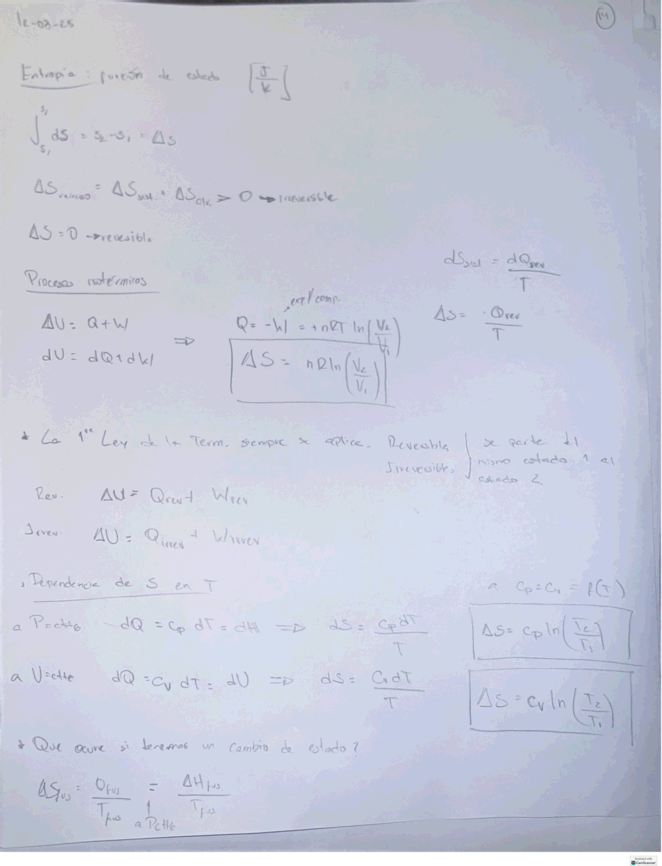 12-03-25
14
Entropía: función de estado [J/K]
∫_{S₁}^{S₂} dS = S₂ - S₁ = ΔS
ΔS_{sist} + ΔS_{alr} > 0 → irreversible
ΔS = 0 → reversible
dS_{sist} = dQ_{rev}/T
Procesos isotérmicos
ΔS = Q_{rev}/T
exp/comp.
ΔU = Q + W ⇒ Q = -W = +nRT ln(V₂/V₁)
dU = dQ + dW
ΔS = nR ln(V₂/V₁)
* La 1ra Ley de la Term. siempre se aplica. Reversible Irreversible } se parte del mismo estado 1 al estado 2
Rev. ΔU = Q_{rev} + W_{rev}
Irrev. ΔU = Q_{irrev} + W_{irrev}
Dependencia de S en T
Cp = Cv = f(T)
a P=ctte dQ = Cp dT = dH ⇒ dS = Cp dT/T
ΔS = Cp ln(T₂/T₁)
a V=ctte dQ = Cv dT = dU ⇒ dS = Cv dT/T
ΔS = Cv ln(T₂/T₁)
* Que ocurre si tenemos un cambio de estado?
ΔS_{fus} = Q_{fus}/T_{fus} = ΔH_{fus}/T_{fus}
a Pctte
CamScanner